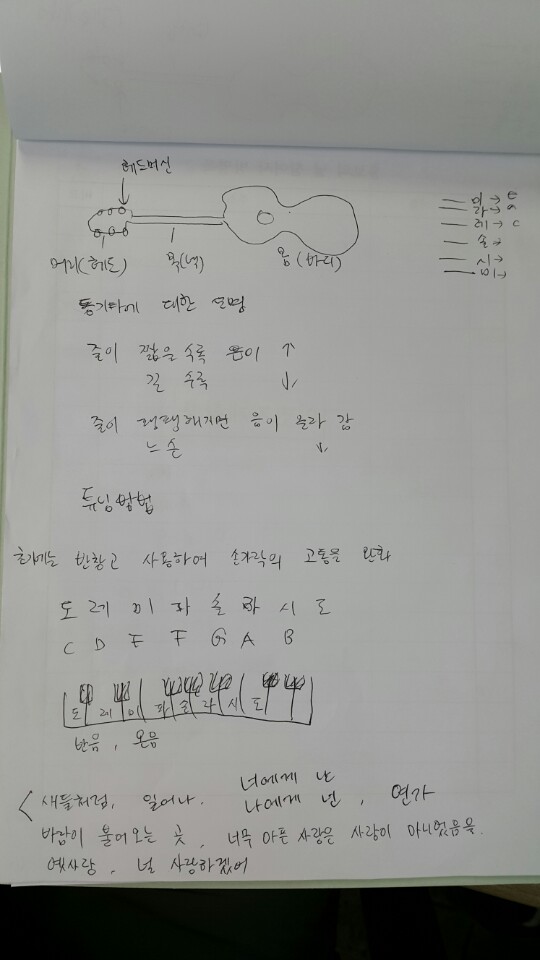 헤드머신
머리(헤드) 목(넥) 몸(바디)
미→e
라→a
레→c
솔→
시→
미→
통기타에 대한 설명
줄이 짧을수록 음이 ↑
길 수록 ↓
줄이 팽팽해지면 음이 올라 감
느슨 ↓
튜닝방법
초기에는 반창고 사용하여 손가락의 고통을 완화
도 레 미 파 솔 라 시 도
C D E F G A B
도 레 미 파 솔 라 시 도
반음, 온음
너에게 난
새들처럼, 일어나. 나에게 넌, 연가
바람이 불어오는 곳, 너무 아픈 사랑은 사랑이 아니었음을.
옛사랑, 널 사랑하겠어